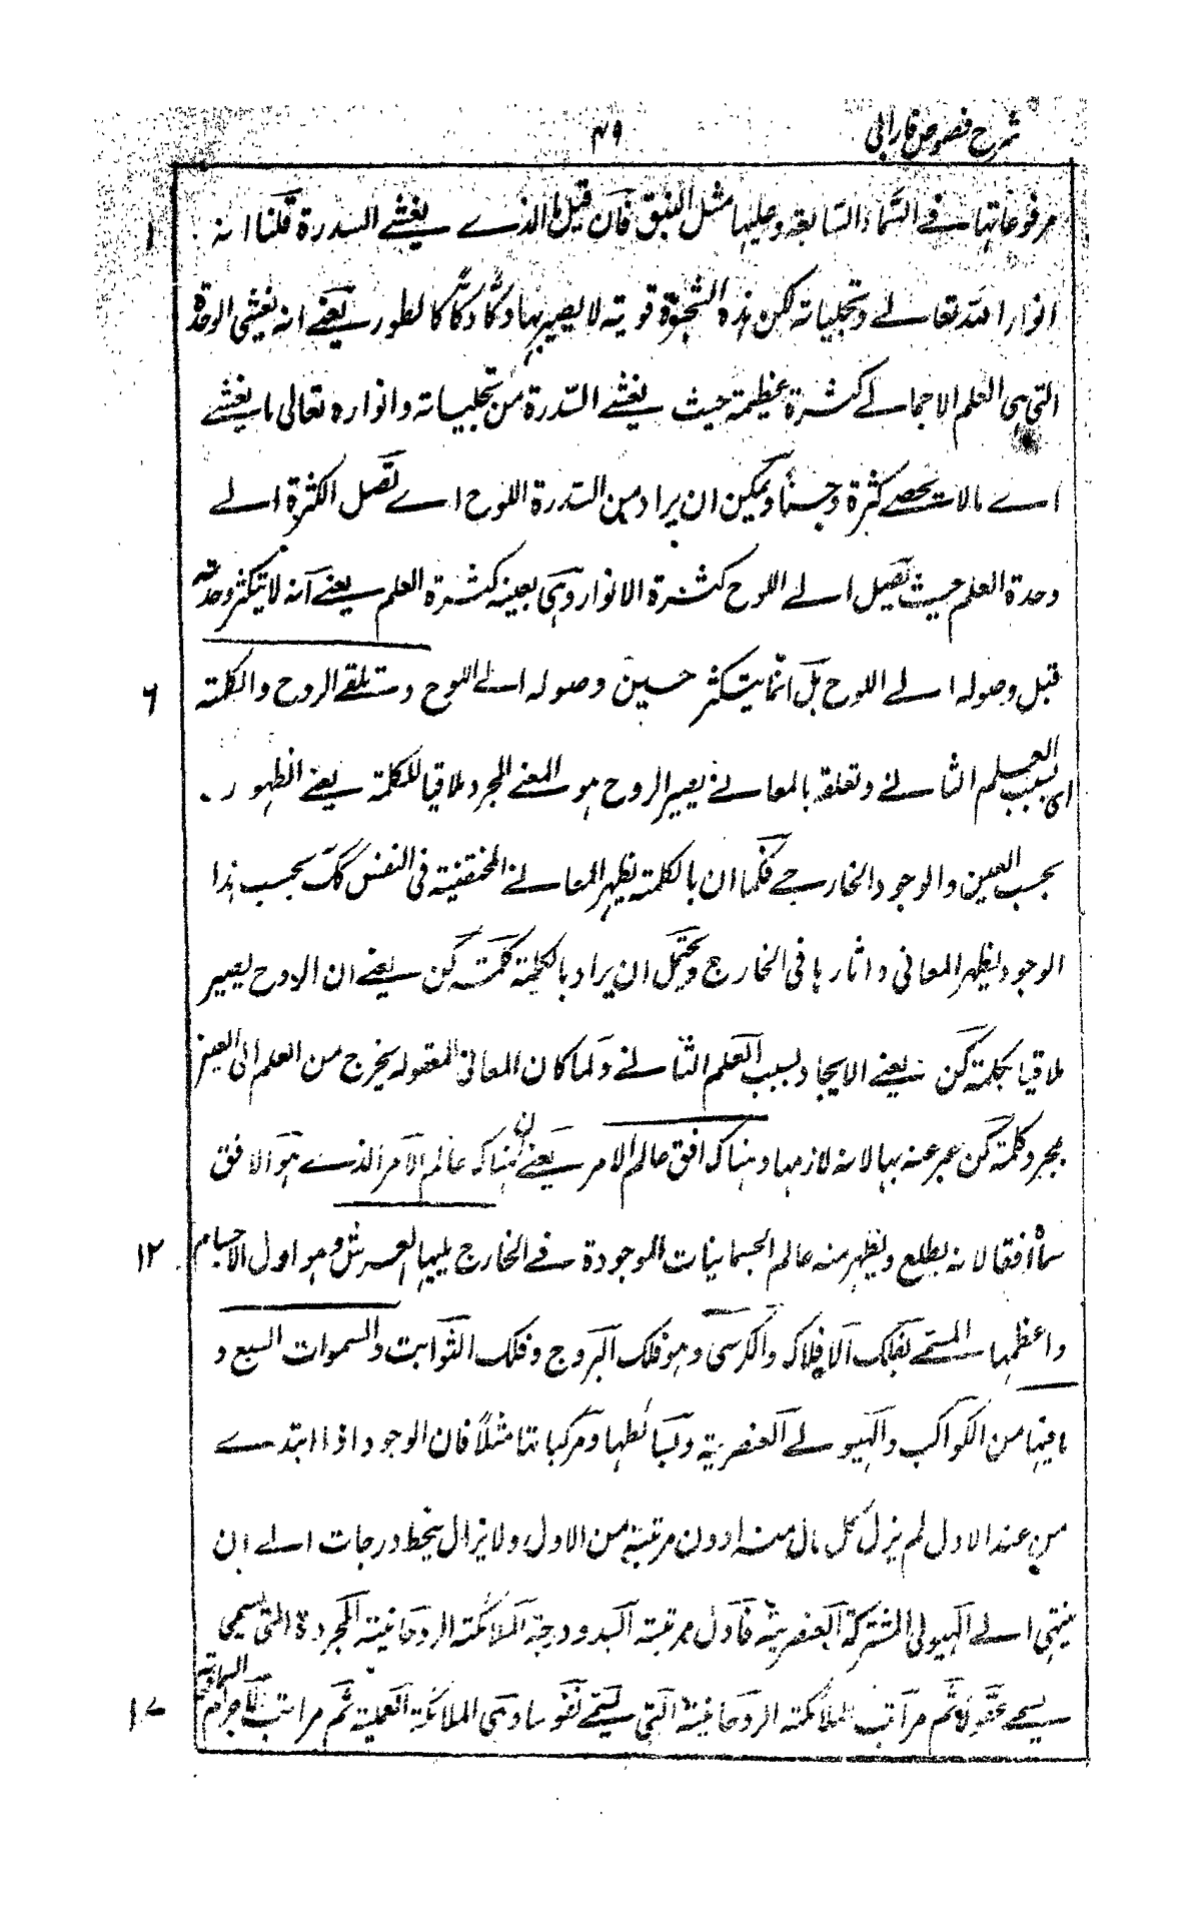 شرح فصوص فارابی ۴۹
مرفوعاتها فے السماء السابعة وعليها مثل النبق فان قيل ما الذے يغشے السدرة قلنا انه
۱
انوار اللہ تعالے وتجلياته لكن هذه الشجرة قوية لا يصير بها دكًّا دكًّا كالطور يعنے انه يغشی الوحدة
التی هی العلم الاجمالے كثرة عظيمة حيث يغشے السدرة من تجلياته وانواره تعالی ما يغشے
اے مالا يحصے كثرة وحسنًا ويمكن ان يراد من السدرة اللوح اے تصل الكثرة الے
وحدة العلم حيث تصل الے اللوح كثرة الانوار وهی بعينه كثرة العلم يعنے انه لا يتكثر وحدته
قبل وصوله الے اللوح بل انما يتكثر حين وصوله الے اللوح وستلقے الروح والكلمة
۶
ای بسبب العلم الثانے وتعلقه بالمعانے يصير الروح هو المعنے المجرد ملاقيا للكلمة يعنے الظهور
بحسب العين والوجود الخارجے فكما ان بالكلمة يظهر المعانے المختفية فی النفس كك بحسب هذا
الوجود يظهر المعانی واثارها فی الخارج ويحتمل ان يراد بالكلمة كلمة كن يعنے ان الروح يصير
ملاقيا بكلمة كن يعنے الايجاد بسبب العلم الثانے ولما كان المعانی المعقوله يخرج من العلم الی العين
بمجرد كلمة كن عبر عنه بها لانه لازمها وهناك افق عالم الامر يعنے ان هناك عالم الامر الذے هو الافق
سماه افقا لانه يطلع ويظهر منه عالم الجسمانيات الموجودة فے الخارج يليها العرش وهو اول الاجسام
۱۲
واعظمها المسمے بفلك الافلاك والكرسی وهو فلك البروج وفلك الثوابت والسموات السبع و
ما فيها من الكواكب والهيولے العنصرية وبسائطها ومركباتها مثلًا فان الوجود اذا ابتدے
من عند الاول لم يزل كل تال منه ادون مرتبة من الاول ولا يزال ينحط درجات الے ان
ينتهی الے الهيولی المشتركة العنصرية فاول مرتبة البدو درجة الملائكة الروحانية المجردة التی تسمی
يسمے عقولا ثم مراتب الملائكة الروحانية التی يسمے نفوسا وهی الملائكة العملية ثم مراتب الاجرام السماوية
۱۷